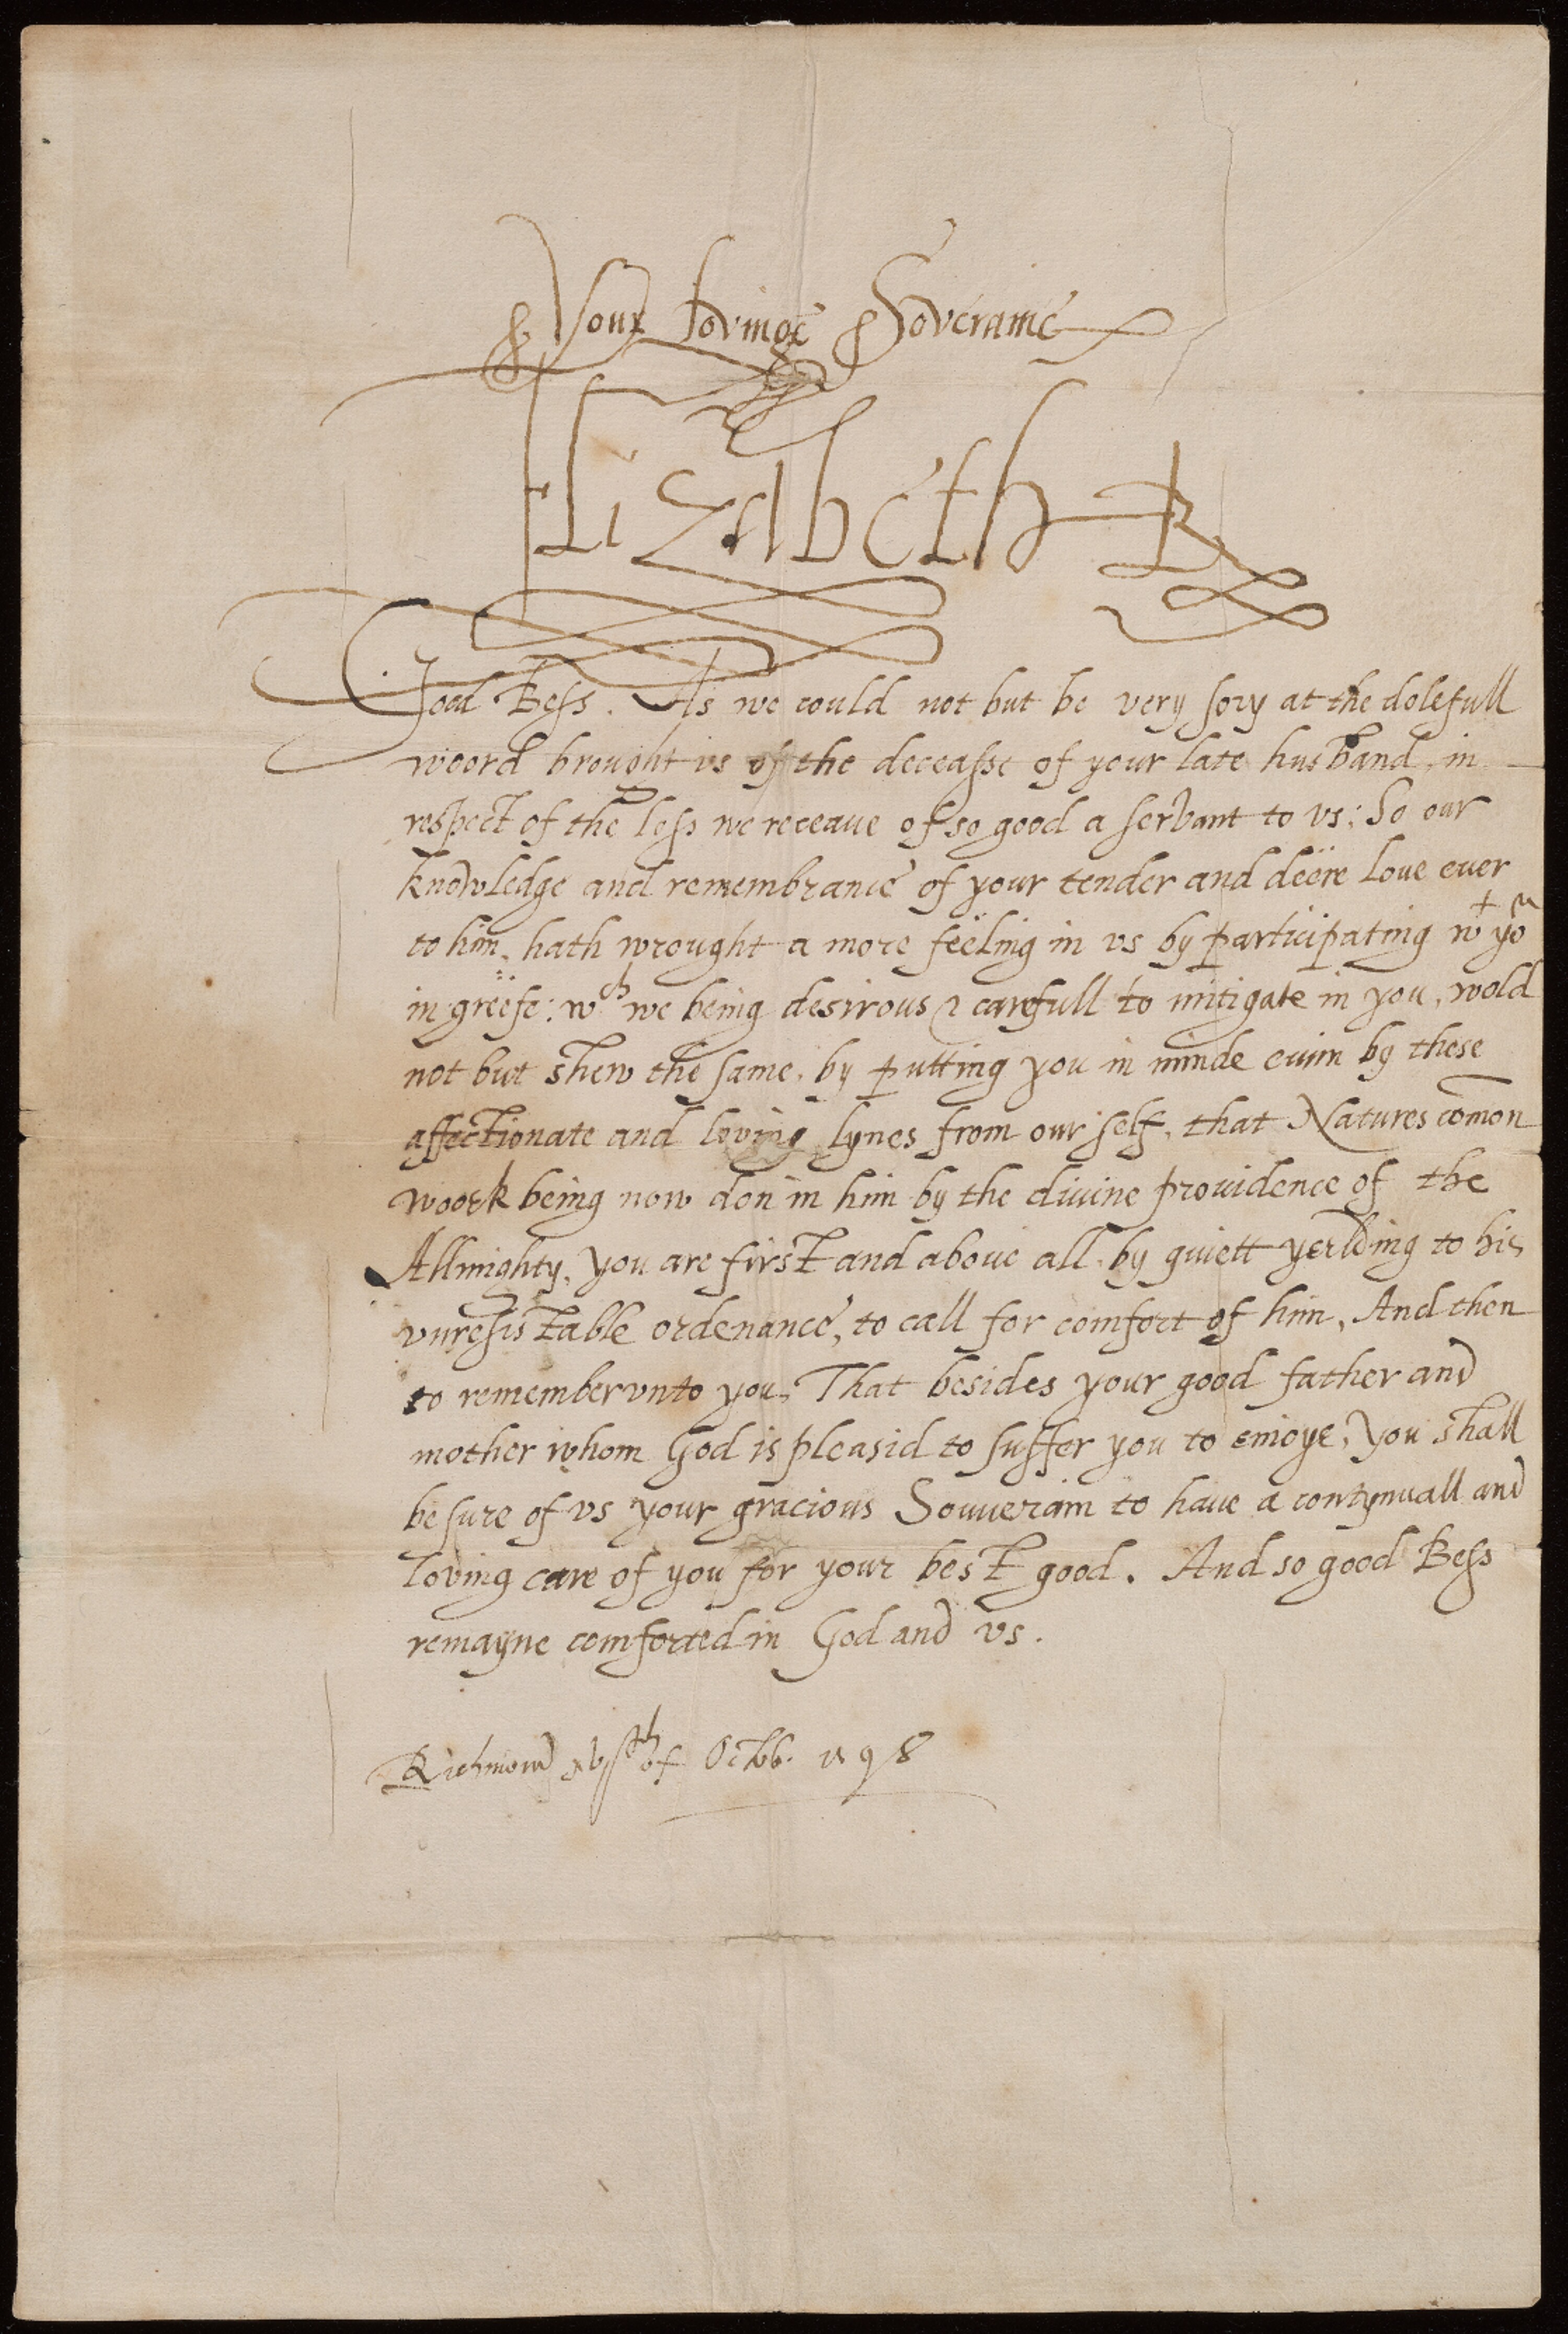 Your lovinge Soveraine
Elizabeth R
Good Bess. As we could not but be very sory at the dolefull
woord brought us of the deceasse of your late husband, in
respect of the loss we receaue of so good a servant to vs: So our
knowledge and remembrance of your tender and deere loue euer
to him, hath wrought a more feeling in vs by participating wt you
in greefe: wch we being desirous & carefull to mitigate in you, wold
not but shew the same, by putting you in minde euin by these
affectionate and loving lynes from our self, that Natures comon
woork being now don in him by the diuine prouidence of the
Allmighty, you are first and aboue all, by quiett yerlding to his
vnresistable ordenance, to call for comfort of him, And then
to remember vnto you, That besides your good father and
mother whom God is pleasid to suffer you to enioye, you shall
be sure of vs your gracious Souuerain to haue a contynuall and
loving care of you for your best good. And so good Bess
remayne comforted in God and vs.
Richmond of Octob. 1598